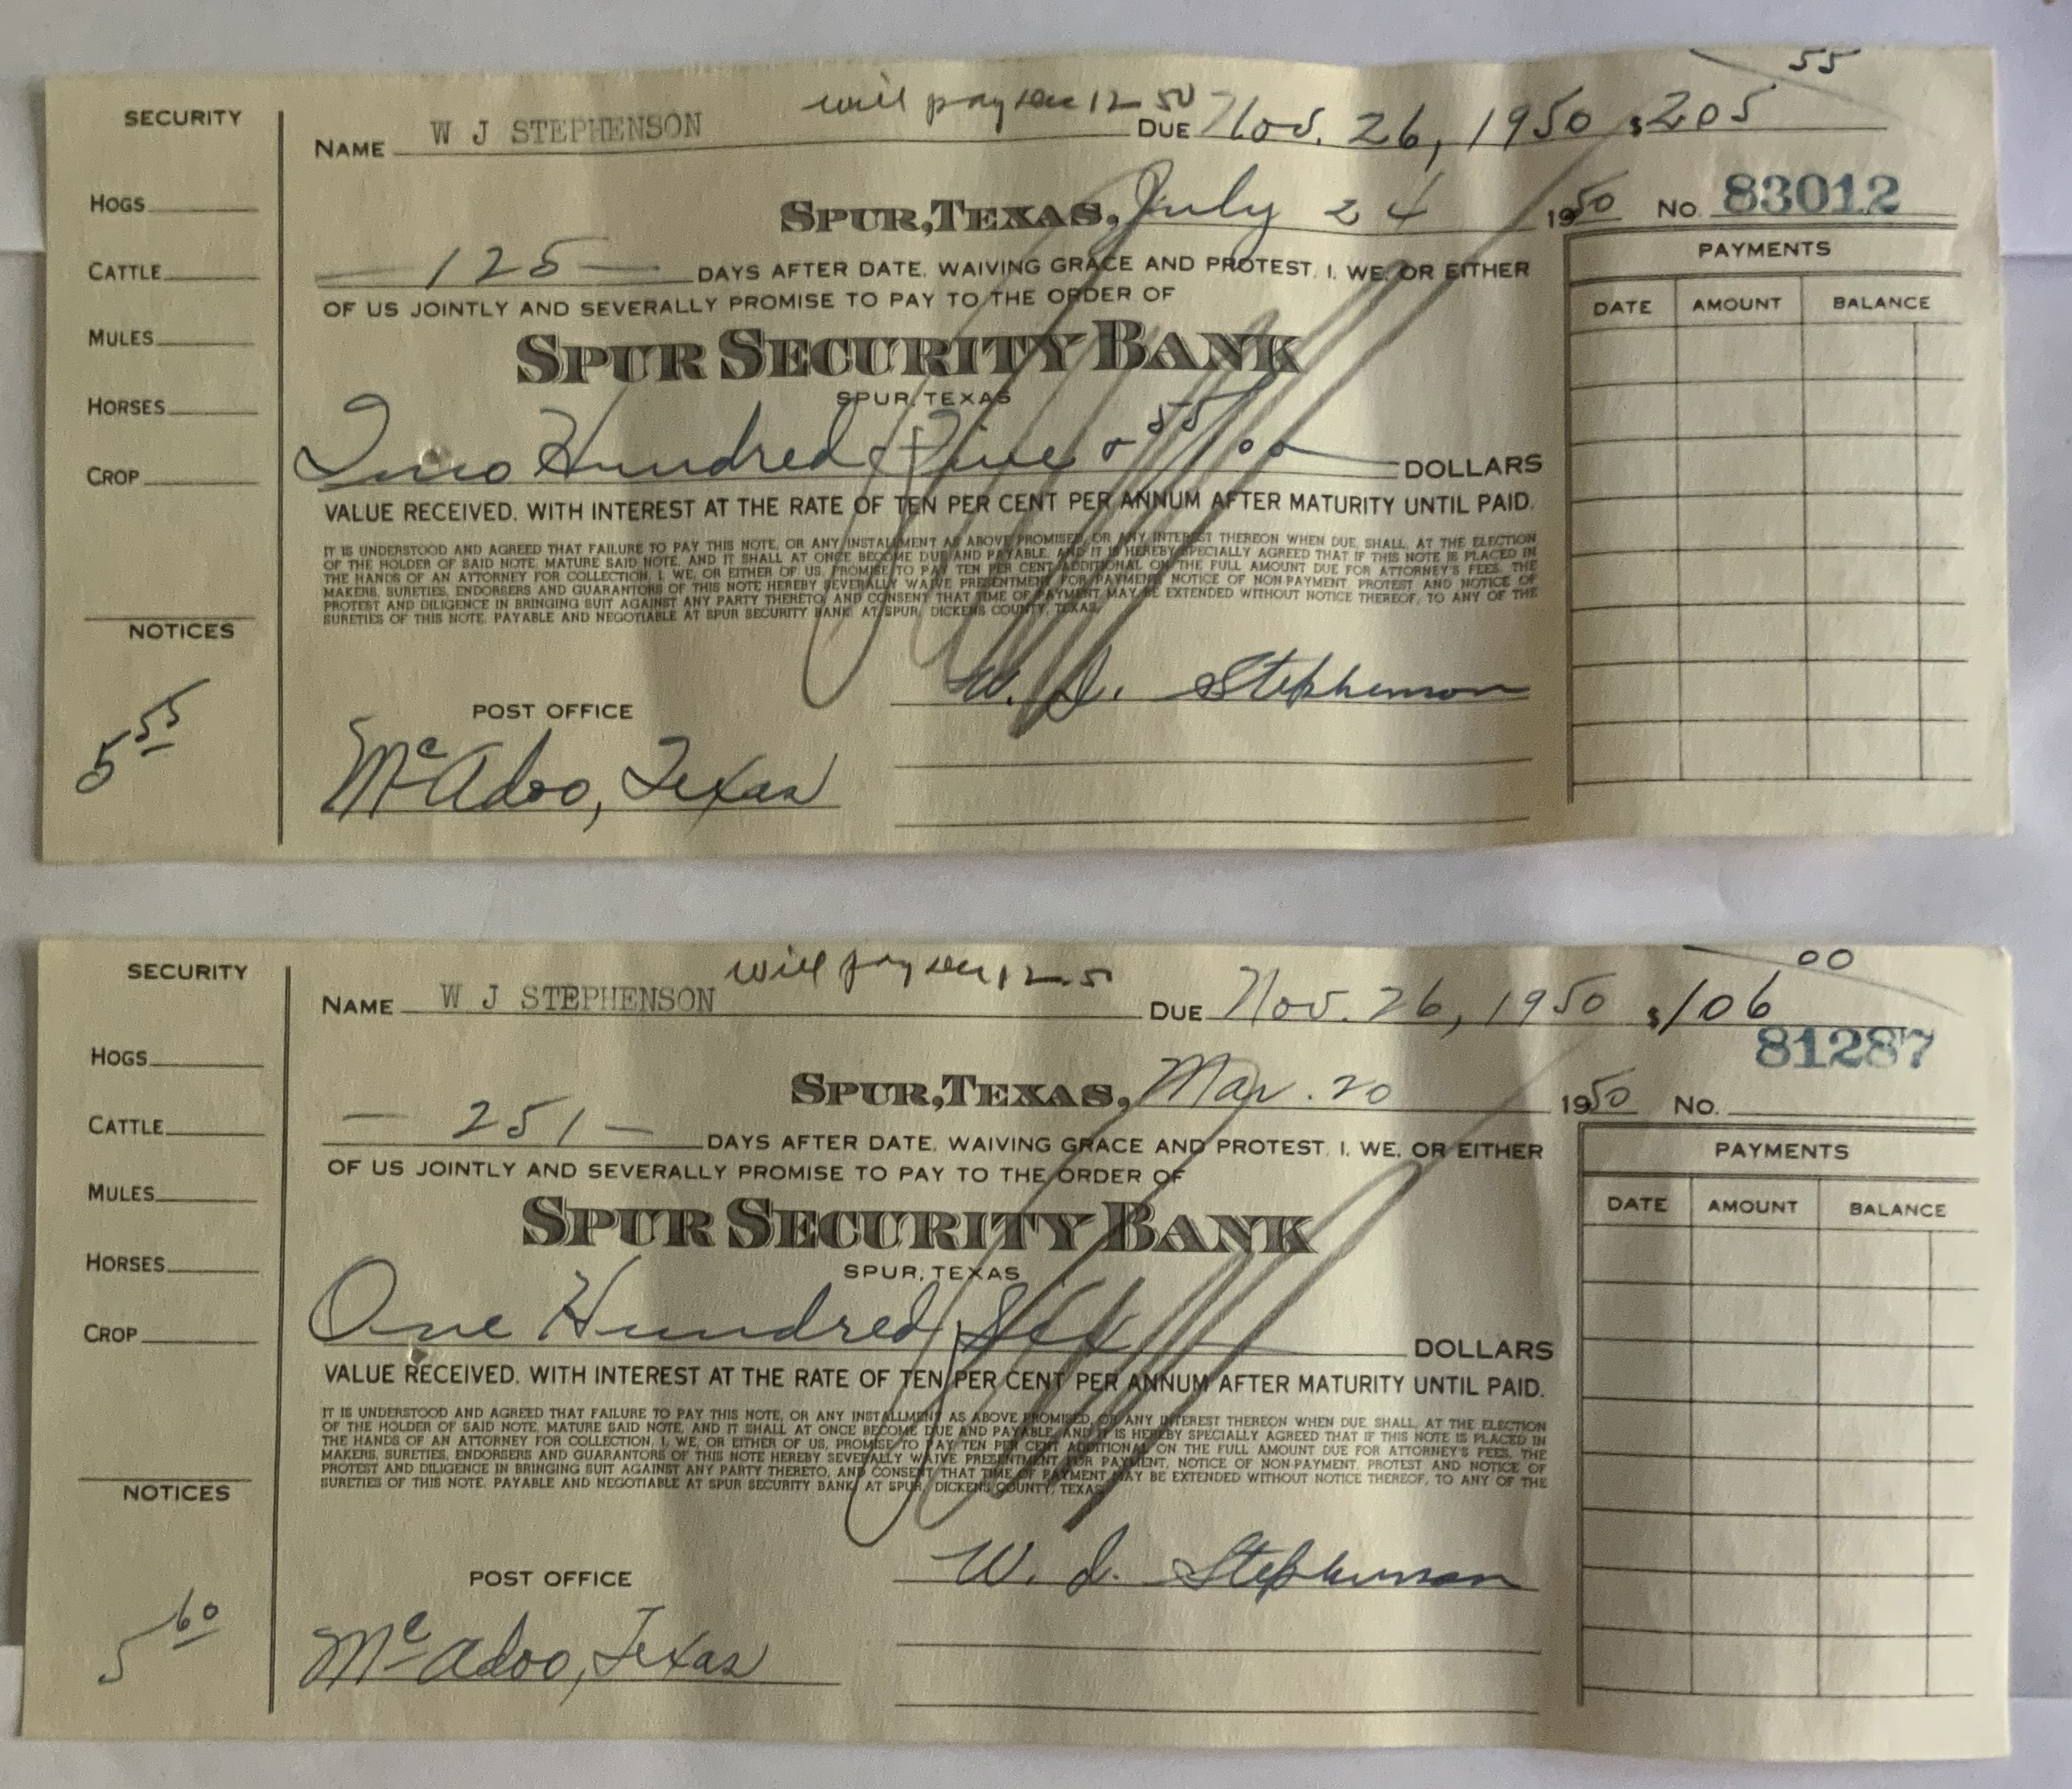 55
will pay Dec 12 50
SECURITY
NAME W J STEPHENSON DUE Nov. 26, 1950 $205
HOGS
SPUR, TEXAS, July 24 1950 No. 83012
CATTLE
— 125 — DAYS AFTER DATE, WAIVING GRACE AND PROTEST, I, WE, OR EITHER
OF US JOINTLY AND SEVERALLY PROMISE TO PAY TO THE ORDER OF
MULES
SPUR SECURITY BANK
SPUR, TEXAS
HORSES
CROP
Two Hundred Five & 55/00 DOLLARS
VALUE RECEIVED, WITH INTEREST AT THE RATE OF TEN PER CENT PER ANNUM AFTER MATURITY UNTIL PAID.
IT IS UNDERSTOOD AND AGREED THAT FAILURE TO PAY THIS NOTE, OR ANY INSTALLMENT AS ABOVE PROMISED, OR ANY INTEREST THEREON WHEN DUE, SHALL, AT THE ELECTION
OF THE HOLDER OF SAID NOTE, MATURE SAID NOTE, AND IT SHALL AT ONCE BECOME DUE AND PAYABLE, AND IT IS HEREBY SPECIALLY AGREED THAT IF THIS NOTE IS PLACED IN
THE HANDS OF AN ATTORNEY FOR COLLECTION, I, WE, OR EITHER OF US, PROMISE TO PAY TEN PER CENT ADDITIONAL ON THE FULL AMOUNT DUE FOR ATTORNEY'S FEES. THE
MAKERS, SURETIES, ENDORSERS AND GUARANTORS OF THIS NOTE HEREBY SEVERALLY WAIVE PRESENTMENT FOR PAYMENT, NOTICE OF NON-PAYMENT, PROTEST AND NOTICE OF
PROTEST AND DILIGENCE IN BRINGING SUIT AGAINST ANY PARTY THERETO, AND CONSENT THAT TIME OF PAYMENT MAY BE EXTENDED WITHOUT NOTICE THEREOF, TO ANY OF THE
SURETIES OF THIS NOTE. PAYABLE AND NEGOTIABLE AT SPUR SECURITY BANK AT SPUR, DICKENS COUNTY, TEXAS.
NOTICES
5 55
W. J. Stephenson
POST OFFICE
McAdoo, Texas
PAYMENTS
DATE AMOUNT BALANCE
00
will pay Dec 12 5
SECURITY
NAME W J STEPHENSON DUE Nov. 26, 1950 $106
81287
HOGS
SPUR, TEXAS, Mar. 20 1950 No.
CATTLE
— 251 — DAYS AFTER DATE, WAIVING GRACE AND PROTEST, I, WE, OR EITHER
OF US JOINTLY AND SEVERALLY PROMISE TO PAY TO THE ORDER OF
MULES
SPUR SECURITY BANK
SPUR, TEXAS
HORSES
CROP
One Hundred Six DOLLARS
VALUE RECEIVED, WITH INTEREST AT THE RATE OF TEN PER CENT PER ANNUM AFTER MATURITY UNTIL PAID.
IT IS UNDERSTOOD AND AGREED THAT FAILURE TO PAY THIS NOTE, OR ANY INSTALLMENT AS ABOVE PROMISED, OR ANY INTEREST THEREON WHEN DUE, SHALL, AT THE ELECTION
OF THE HOLDER OF SAID NOTE, MATURE SAID NOTE, AND IT SHALL AT ONCE BECOME DUE AND PAYABLE, AND IT IS HEREBY SPECIALLY AGREED THAT IF THIS NOTE IS PLACED IN
THE HANDS OF AN ATTORNEY FOR COLLECTION, I, WE, OR EITHER OF US, PROMISE TO PAY TEN PER CENT ADDITIONAL ON THE FULL AMOUNT DUE FOR ATTORNEY'S FEES. THE
MAKERS, SURETIES, ENDORSERS AND GUARANTORS OF THIS NOTE HEREBY SEVERALLY WAIVE PRESENTMENT FOR PAYMENT, NOTICE OF NON-PAYMENT, PROTEST AND NOTICE OF
PROTEST AND DILIGENCE IN BRINGING SUIT AGAINST ANY PARTY THERETO, AND CONSENT THAT TIME OF PAYMENT MAY BE EXTENDED WITHOUT NOTICE THEREOF, TO ANY OF THE
SURETIES OF THIS NOTE. PAYABLE AND NEGOTIABLE AT SPUR SECURITY BANK AT SPUR, DICKENS COUNTY, TEXAS.
NOTICES
5 60
W. J. Stephenson
POST OFFICE
McAdoo, Texas
PAYMENTS
DATE AMOUNT BALANCE